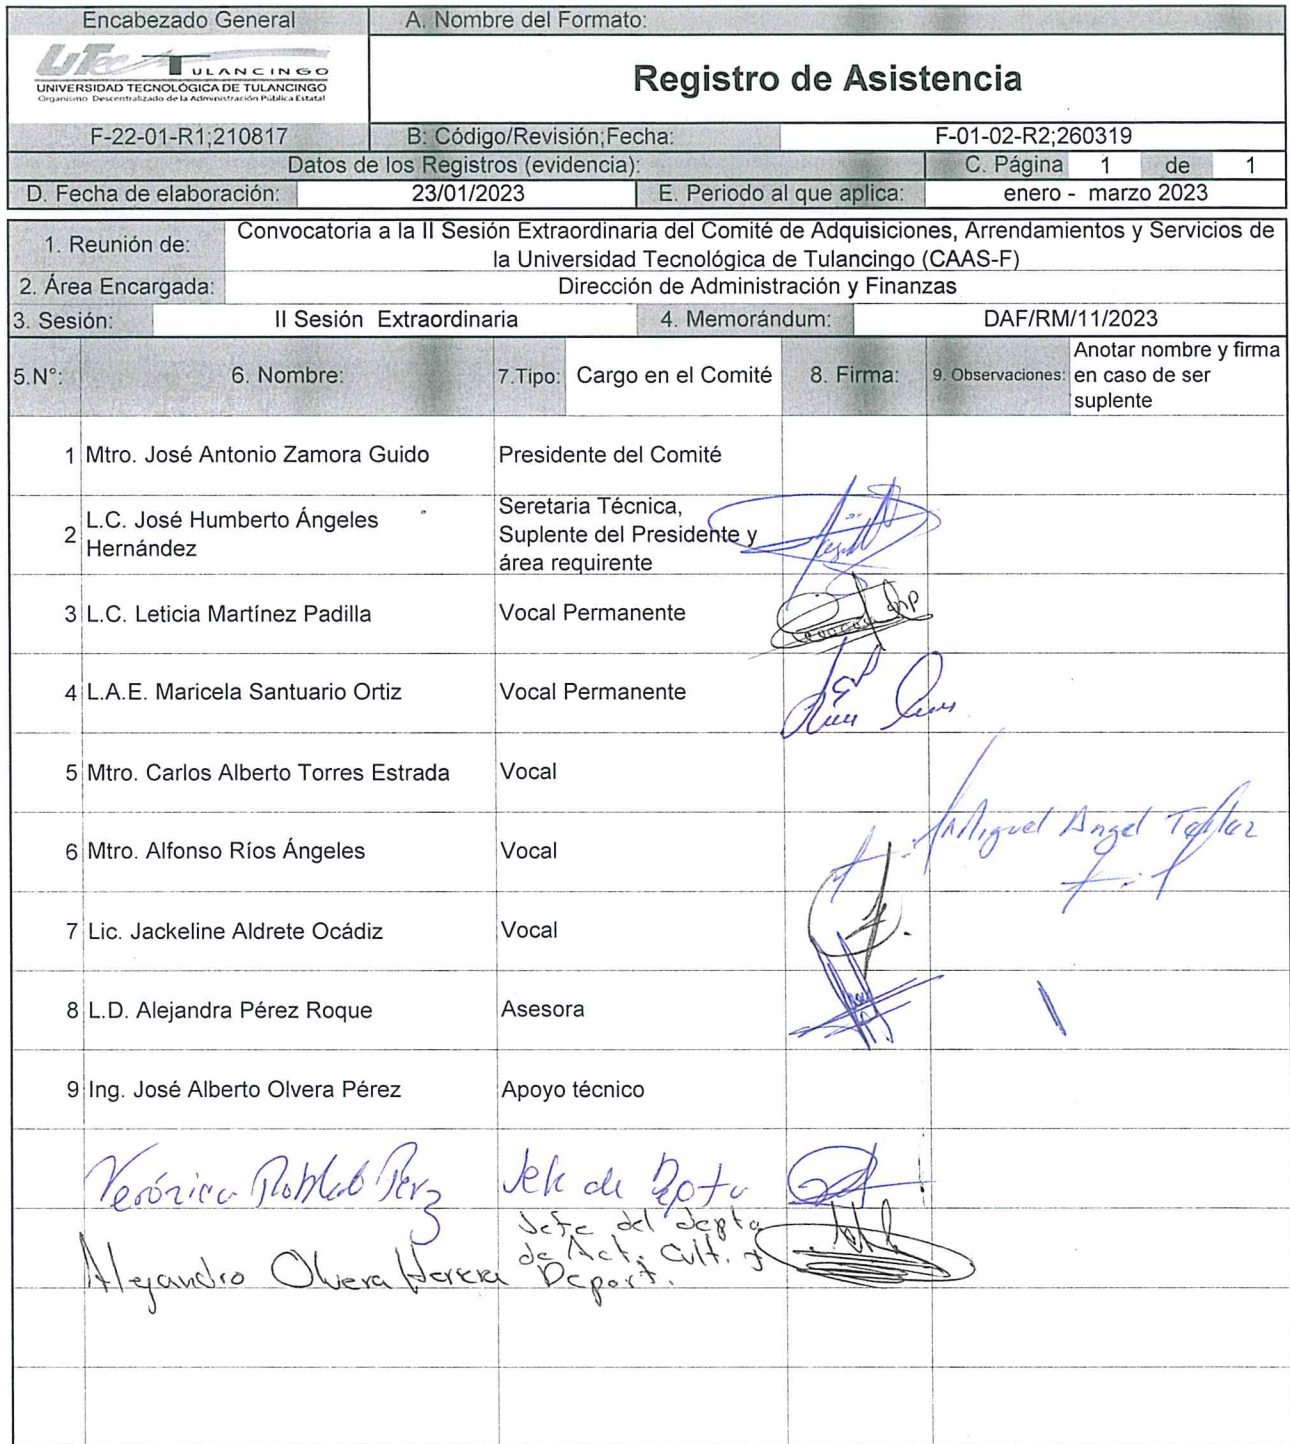 Encabezado General
A. Nombre del Formato:
UTec TULANCINGO
UNIVERSIDAD TECNOLÓGICA DE TULANCINGO
Organismo Descentralizado de la Administración Pública Estatal
Registro de Asistencia
F-22-01-R1;210817
B: Código/Revisión;Fecha:
F-01-02-R2;260319
Datos de los Registros (evidencia):
C. Página 1 de 1
D. Fecha de elaboración:
23/01/2023
E. Periodo al que aplica:
enero - marzo 2023
1. Reunión de:
Convocatoria a la II Sesión Extraordinaria del Comité de Adquisiciones, Arrendamientos y Servicios de
la Universidad Tecnológica de Tulancingo (CAAS-F)
2. Área Encargada:
Dirección de Administración y Finanzas
3. Sesión:
II Sesión Extraordinaria
4. Memorándum:
DAF/RM/11/2023
5.N°:
6. Nombre:
7.Tipo:
Cargo en el Comité
8. Firma:
9. Observaciones:
Anotar nombre y firma
en caso de ser
suplente
1 Mtro. José Antonio Zamora Guido
Presidente del Comité
2 L.C. José Humberto Ángeles
Hernández
Seretaria Técnica,
Suplente del Presidente y
área requirente
3 L.C. Leticia Martínez Padilla
Vocal Permanente
4 L.A.E. Maricela Santuario Ortiz
Vocal Permanente
5 Mtro. Carlos Alberto Torres Estrada
Vocal
6 Mtro. Alfonso Ríos Ángeles
Vocal
Miguel Angel
7 Lic. Jackeline Aldrete Ocádiz
Vocal
8 L.D. Alejandra Pérez Roque
Asesora
9 Ing. José Alberto Olvera Pérez
Apoyo técnico
Verónica
Jefe de Depto
Alejandro Olvera Herrera
Jefe del depto
de Act. Cult. y
Deport.